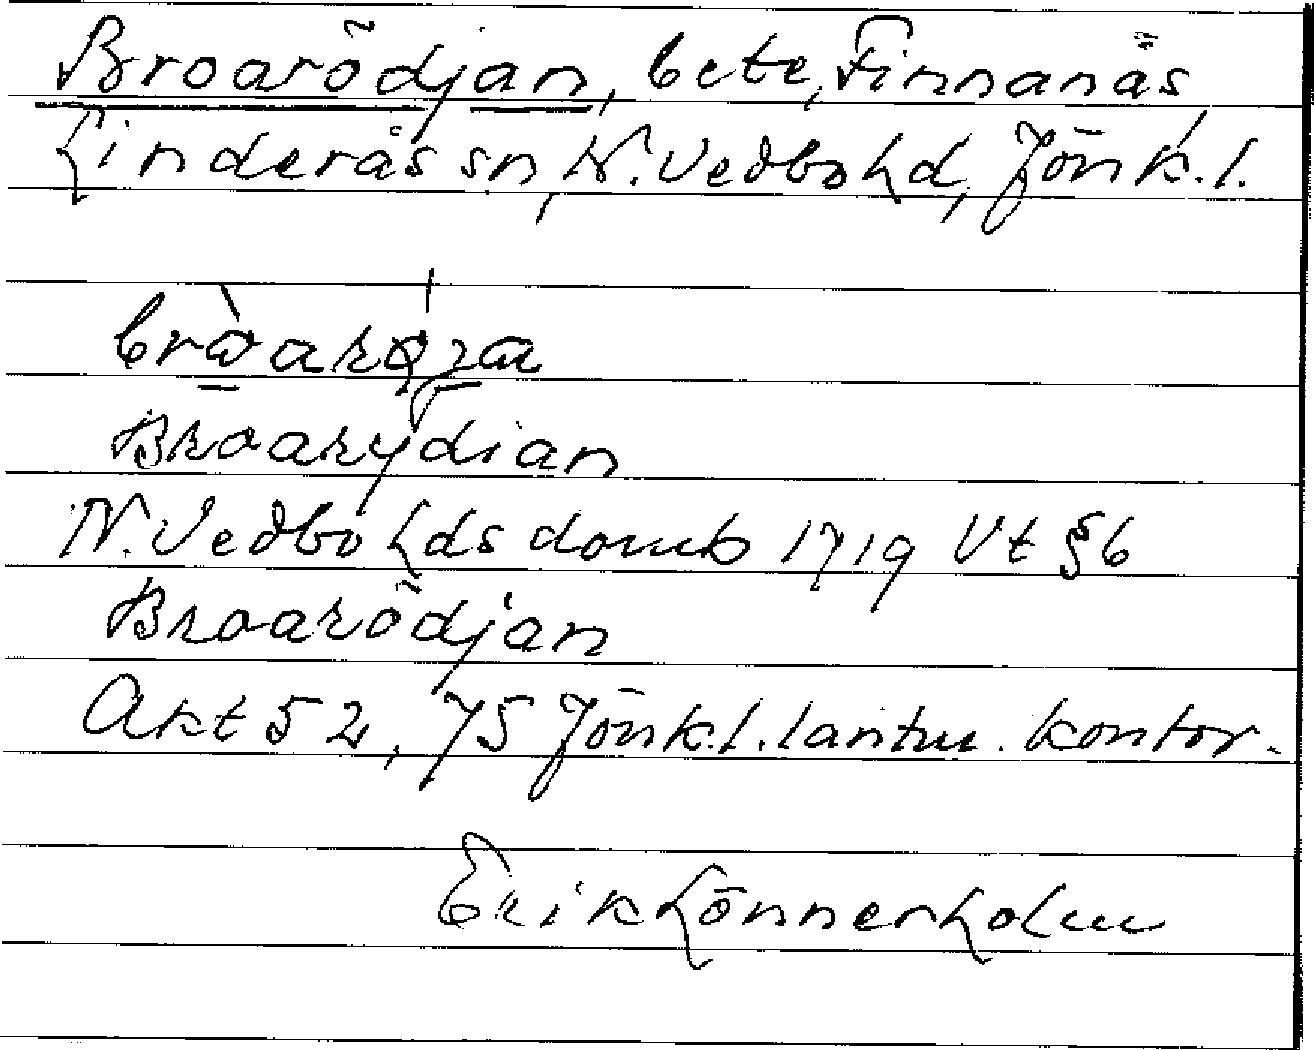 Broarödjan, bete, Finnanäs,
Linderås sn, N. Vedbo hd, Jönk. l.
Broarydian
N. Vedbo hds domb 1719 Vt §6
Broarödjan
Akt 52, 75 Jönk. l. lantm. kontor.
Erik Lönnerholm